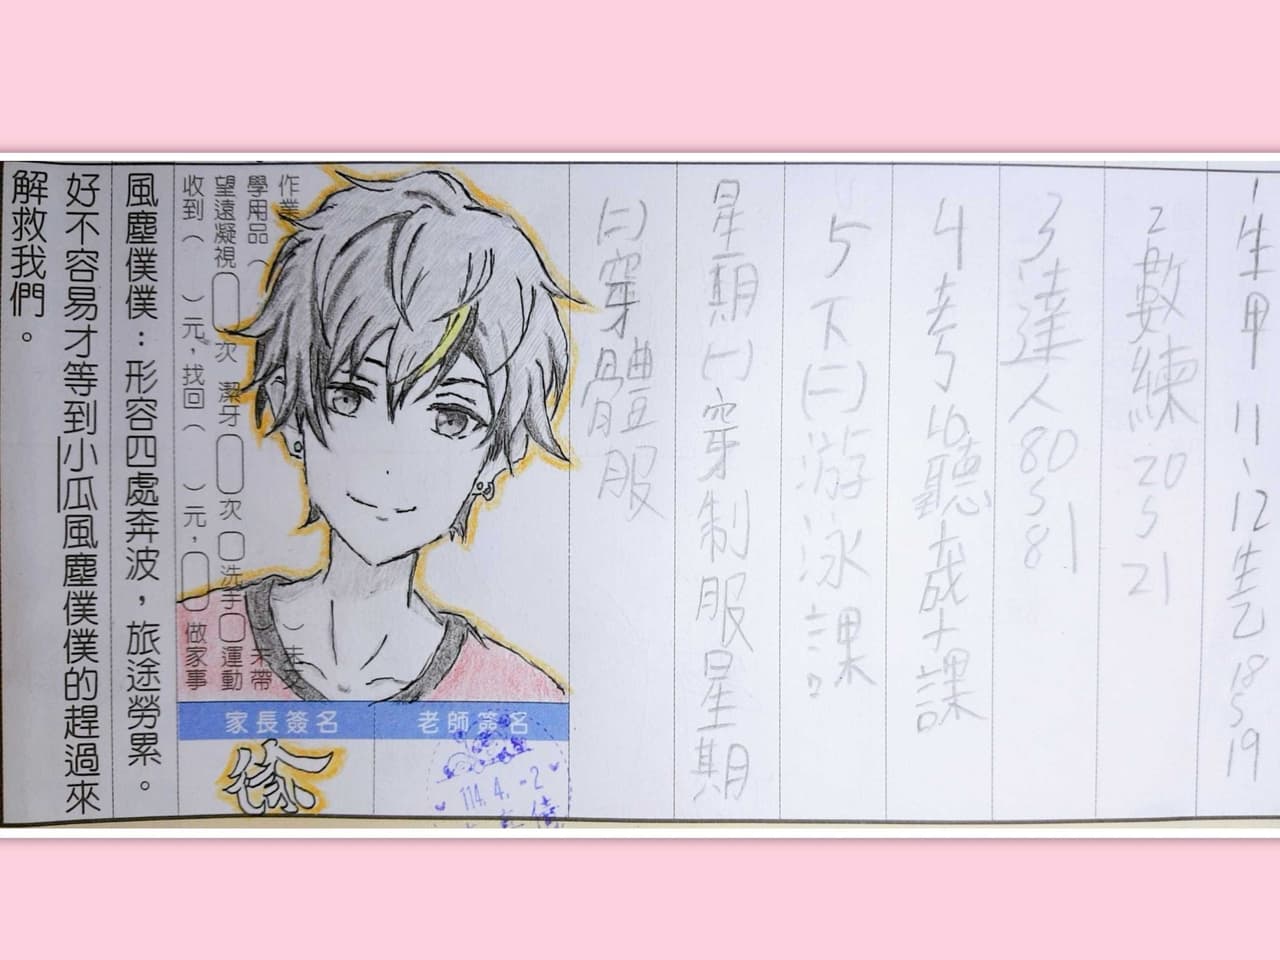 1生甲11、12生乙18~19
2數練20~21
3達人80~81
4考ㄋ10聽力成十課
5下(二)游泳課
星期(一)穿制服星期
(二)穿體服
作業
學用品（ 未帶
望遠凝視 次 潔牙 次 洗手 運動
收到（ ）元，找回（ ）元， 做家事
家長簽名
徐
老師簽名
114.4.-2
風塵僕僕：形容四處奔波，旅途勞累。
好不容易才等到小瓜風塵僕僕的趕過來
解救我們。